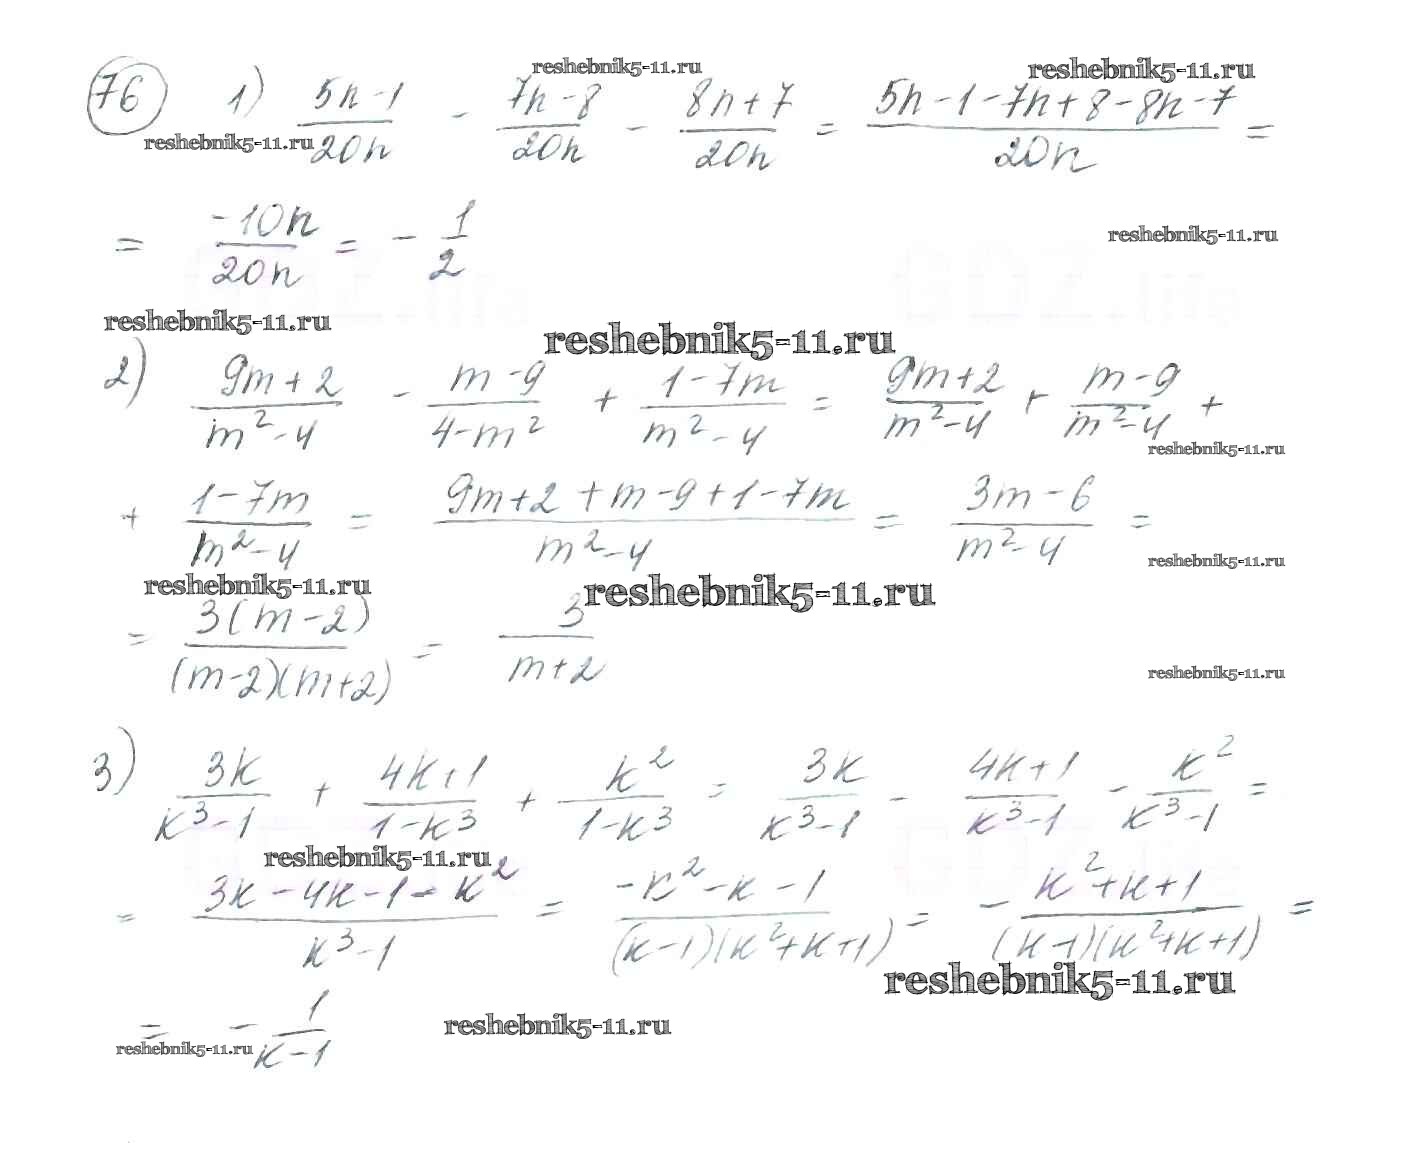 reshebnik5-11.ru reshebnik5-11.ru
76 1) (5n-1)/(20n) - (7n-8)/(20n) - (8n+7)/(20n) = (5n-1-7n+8-8n-7)/(20n) =
reshebnik5-11.ru
= (-10n)/(20n) = - 1/2
reshebnik5-11.ru
GDZ.life GDZ.life
reshebnik5-11.ru reshebnik5-11.ru
2) (9m+2)/(m²-4) - (m-9)/(4-m²) + (1-7m)/(m²-4) = (9m+2)/(m²-4) + (m-9)/(m²-4) +
reshebnik5-11.ru
+ (1-7m)/(m²-4) = (9m+2+m-9+1-7m)/(m²-4) = (3m-6)/(m²-4) =
reshebnik5-11.ru
reshebnik5-11.ru reshebnik5-11.ru
= (3(m-2))/((m-2)(m+2)) = 3/(m+2)
reshebnik5-11.ru
3) (3k)/(k³-1) + (4k+1)/(1-k³) + (k²)/(1-k³) = (3k)/(k³-1) - (4k+1)/(k³-1) - (k²)/(k³-1) =
reshebnik5-11.ru
= (3k-4k-1-k²)/(k³-1) = (-k²-k-1)/((k-1)(k²+k+1)) = - (k²+k+1)/((k-1)(k²+k+1)) =
reshebnik5-11.ru
= - 1/(k-1)
reshebnik5-11.ru
reshebnik5-11.ru